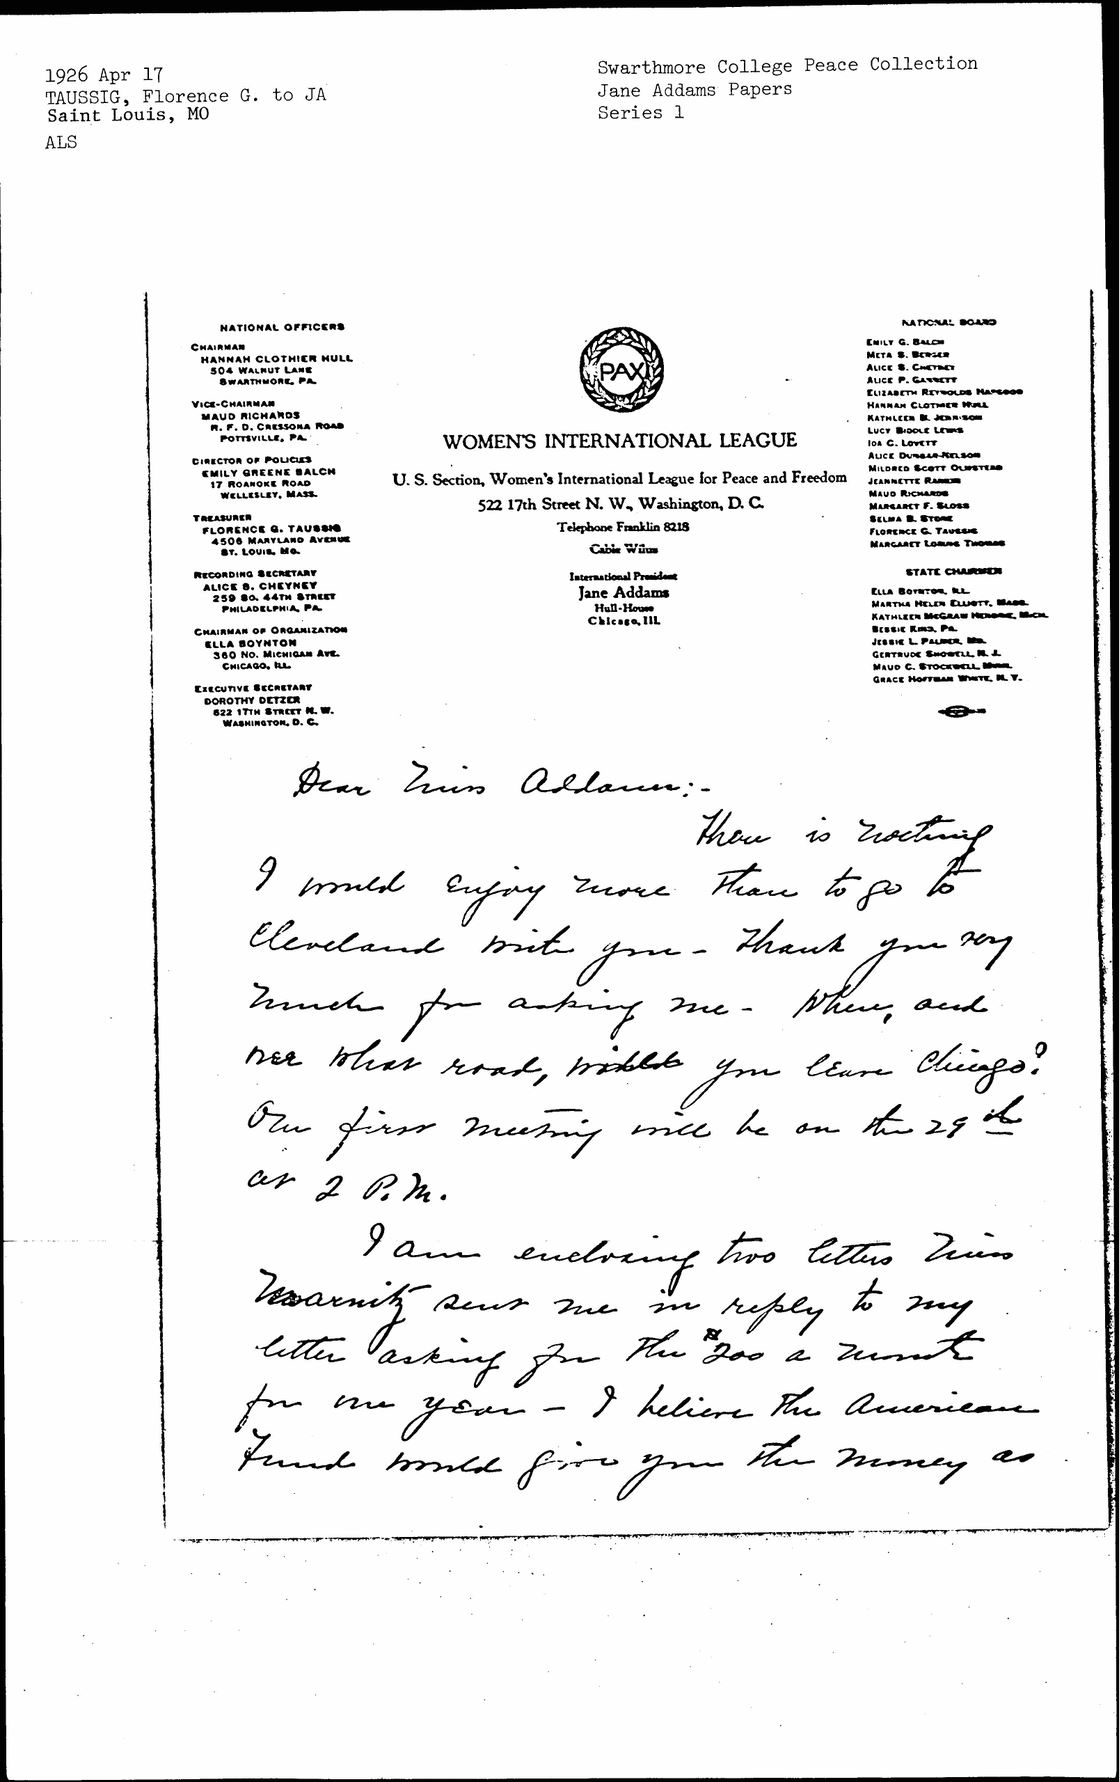 1926 Apr 17
TAUSSIG, Florence G. to JA
Saint Louis, MO
ALS
Swarthmore College Peace Collection
Jane Addams Papers
Series 1
NATIONAL OFFICERS
CHAIRMAN
HANNAH CLOTHIER HULL
504 WALNUT LANE
SWARTHMORE, PA.
VICE-CHAIRMAN
MAUD RICHARDS
R. F. D. CRESSONA ROAD
POTTSVILLE, PA.
DIRECTOR OF POLICIES
EMILY GREENE BALCH
17 ROANOKE ROAD
WELLESLEY, MASS.
TREASURER
FLORENCE G. TAUSSIG
4506 MARYLAND AVENUE
ST. LOUIS, MO.
RECORDING SECRETARY
ALICE S. CHEYNEY
259 SO. 44TH STREET
PHILADELPHIA, PA.
CHAIRMAN OF ORGANIZATION
ELLA BOYNTON
360 NO. MICHIGAN AVE.
CHICAGO, ILL.
EXECUTIVE SECRETARY
DOROTHY DETZER
522 17TH STREET N. W.
WASHINGTON, D. C.
PAX
WOMEN'S INTERNATIONAL LEAGUE
U. S. Section, Women's International League for Peace and Freedom
522 17th Street N. W., Washington, D. C.
Telephone Franklin 8218
Cable Wilus
International President
Jane Addams
Hull-House
Chicago, Ill.
NATIONAL BOARD
EMILY G. BALCH
META S. BERGER
ALICE S. CHEYNEY
ALICE P. GANNETT
ELIZABETH REYNOLDS HAPGOOD
HANNAH CLOTHIER HULL
KATHLEEN B. JENNISON
LUCY BIDDLE LEWIS
IDA C. LOVETT
ALICE DUNBAR-NELSON
MILDRED SCOTT OLMSTEAD
JEANNETTE RANKIN
MAUD RICHARDS
MARGARET F. SLOSS
SELMA B. STONE
FLORENCE G. TAUSSIG
MARGARET LORING THOMAS
STATE CHAIRMEN
ELLA BOYNTON, ILL.
MARTHA HELEN ELLIOTT, MASS.
KATHLEEN MCGRAW HENDRIE, MICH.
BESSIE KIND, PA.
JESSIE L. PALMER, MO.
GERTRUDE SHOWELL, N. J.
MAUD C. STOCKWELL, MINN.
GRACE HOFFMAN WHITE, N. Y.
Dear Miss Addams:-
There is nothing
I would enjoy more than to go to
Cleveland with you - Thank you very
much for asking me - When, and
over what road, will you leave Chicago?
Our first meeting will be on the 29th
at 2 P.M.
I am enclosing two letters Miss
Marnitz sent me in reply to my
letter asking for the $200 a month
for one year - I believe the American
Fund would give you the money as